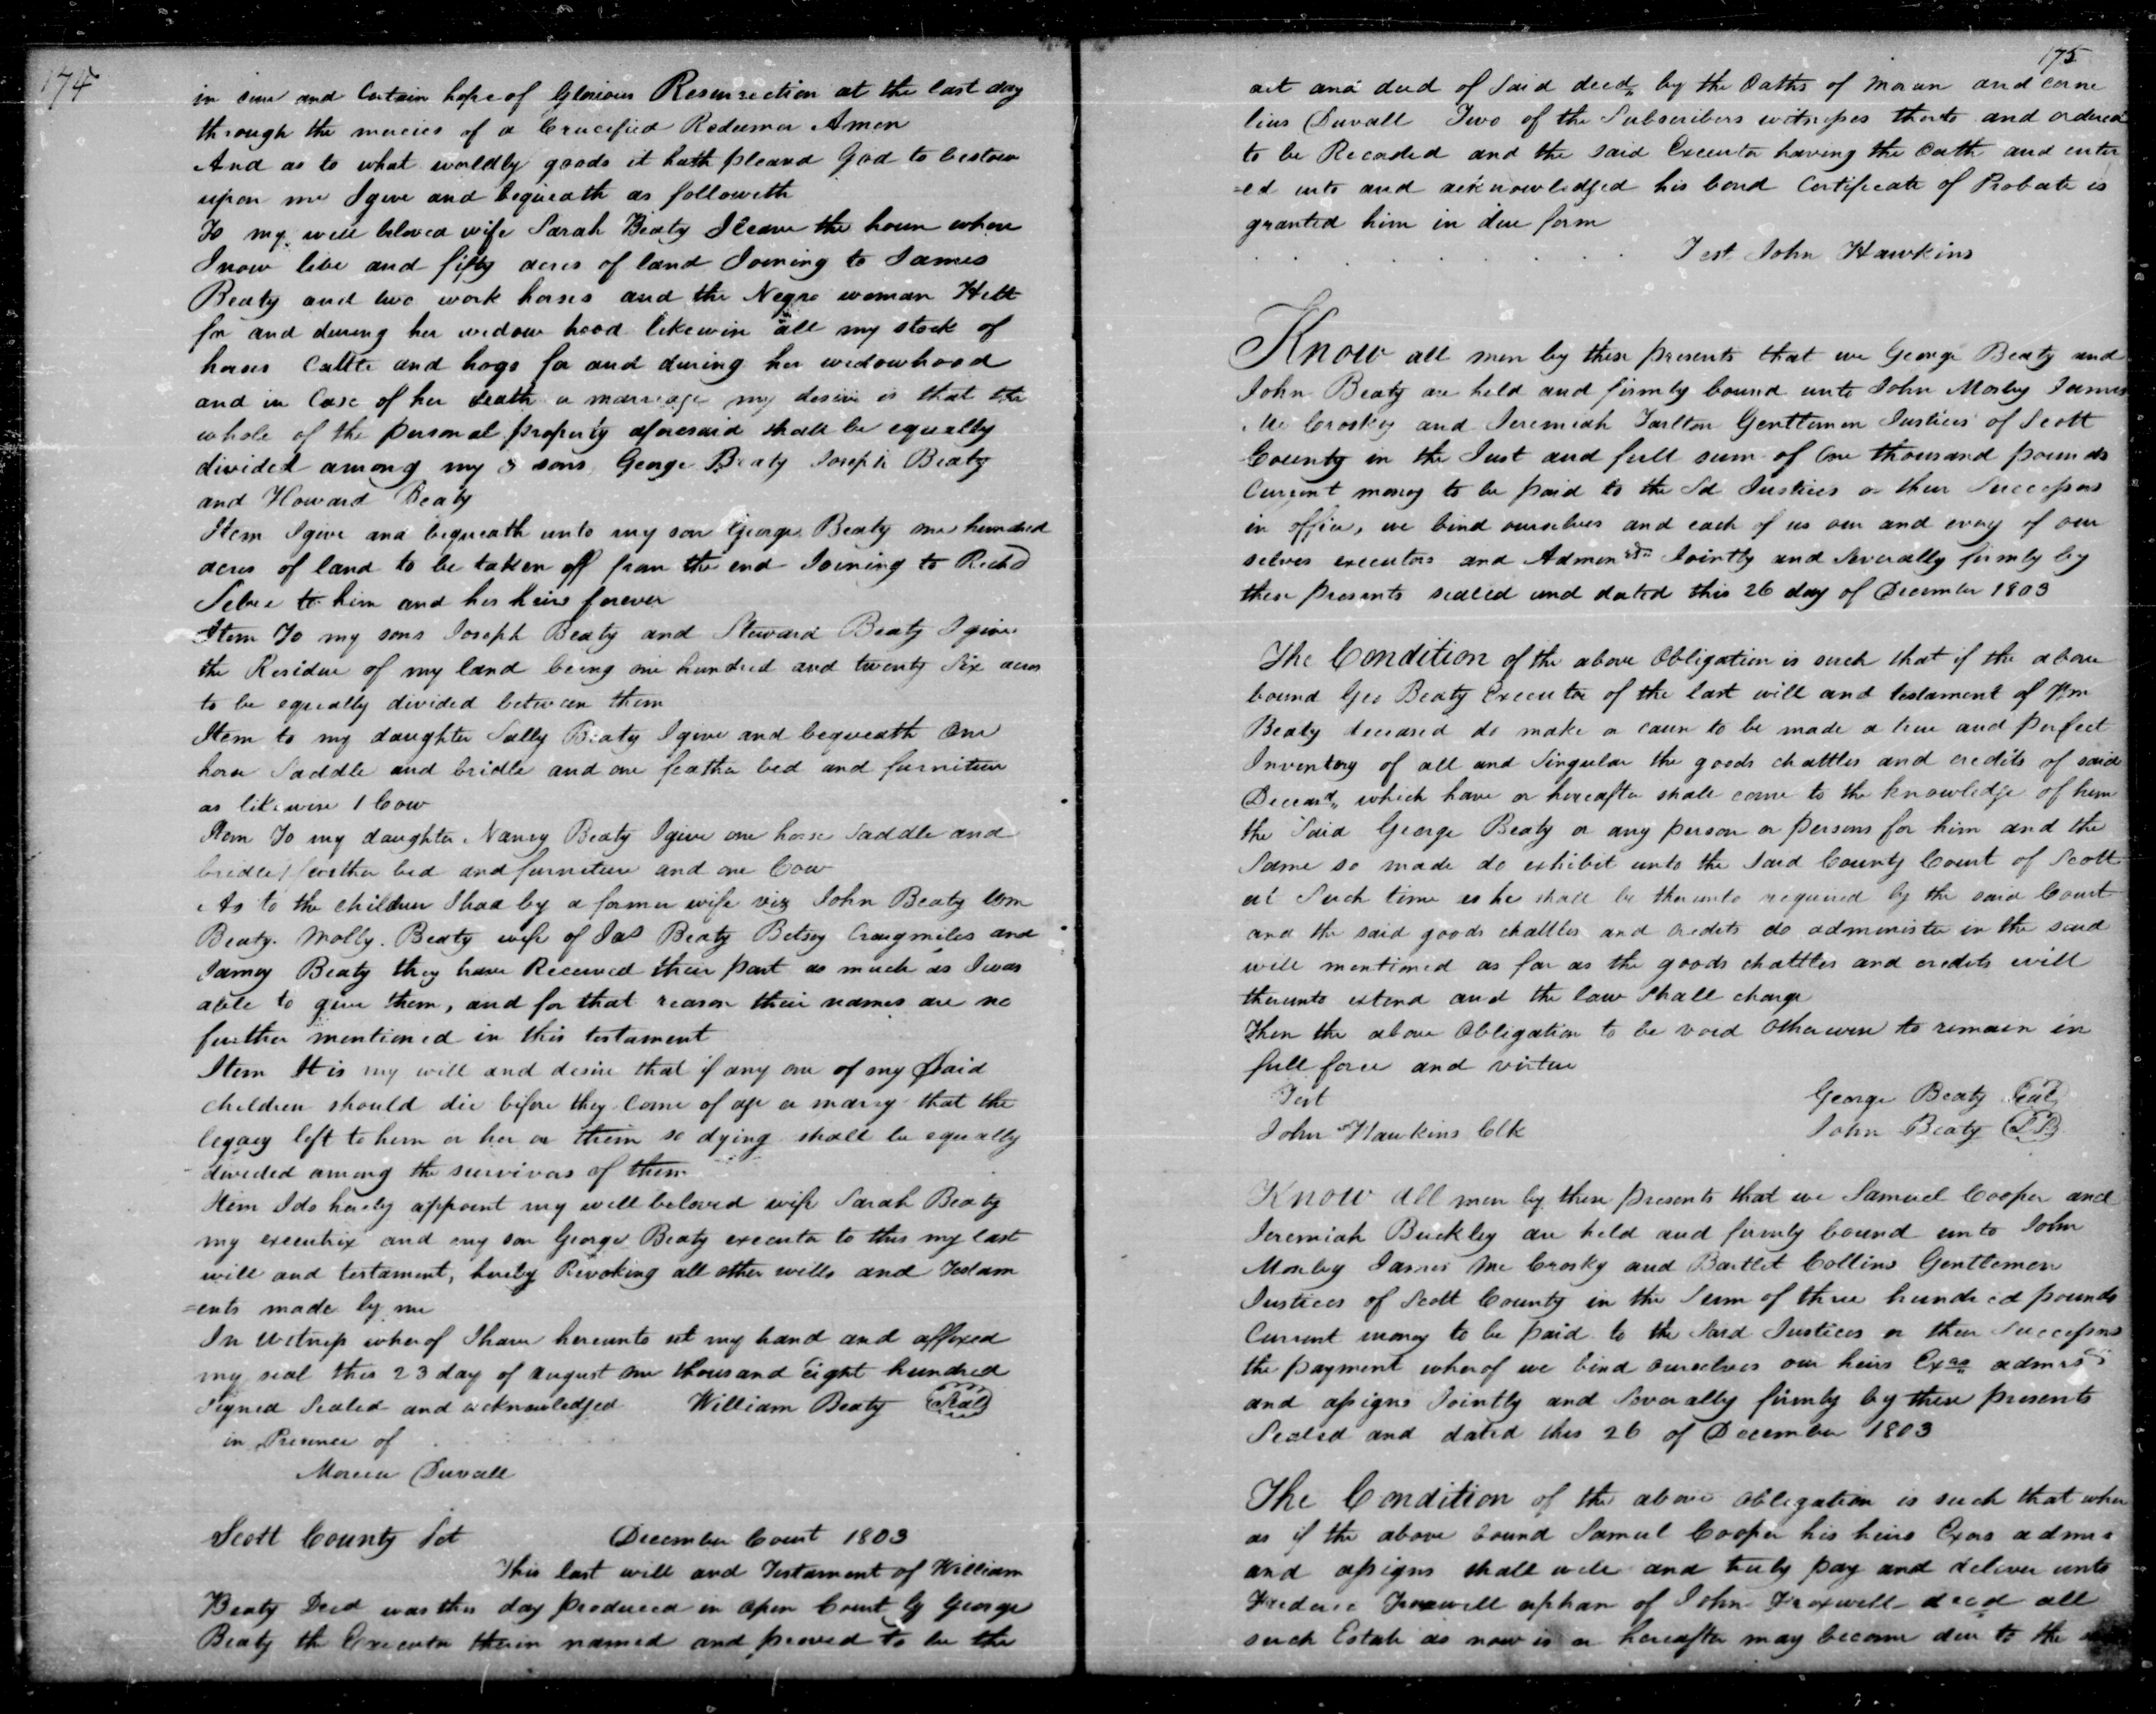 174
in sure and Certain hope of Glorious Resurrection at the last day
through the mercies of a Crucified Redeemer Amen
And as to what worldly goods it hath pleased God to bestow
upon me I give and bequeath as followeth
To my well beloved wife Sarah Beaty I leave the house where
I now live and fifty acres of land Joining to James
Beaty and two work horses and the Negro woman
for and during her widow hood likewise all my stock of
horses Cattle and hogs for and during her widowhood
and in Case of her death or marriage my desire is that the
whole of the personal property aforesaid shall be equally
divided among my 3 sons George Beaty Joseph Beaty
and Howard Beaty
Item I give and bequeath unto my son George Beaty one hundred
acres of land to be taken off from the end Joining to Richd
to him and his heirs forever
Item To my sons Joseph Beaty and Steward Beaty I give
the Residue of my land being one hundred and twenty Six acres
to be equally divided between them
Item to my daughter Sally Beaty I give and bequeath One
horse Saddle and bridle and one feather bed and furniture
as likewise 1 Cow
Item To my daughter Nancy Beaty I give one horse Saddle and
bridle 1 feather bed and furniture and one Cow
As to the children I had by a former wife viz John Beaty Wm
Beaty. Molly. Beaty wife of Jas Beaty Betsy Craigmiles and
Jamey Beaty they have Received their part as much as I was
able to give them, and for that reason their names are no
further mentioned in this testament
Item It is my will and desire that if any one of my Said
children should die before they Come of age or marry that the
legacy left to him or her or them so dying shall be equally
divided among the survivors of them
Item I do hereby appoint my well beloved wife Sarah Beaty
my executrix and my son George Beaty executor to this my last
will and testament, hereby Revoking all other wills and Testam
=ents made by me
In Witness whereof I have hereunto set my hand and affixed
my seal this 23 day of august one thousand Eight hundred
Signed Sealed and acknowledged William Beaty Seal
in Presence of
Mareen Duvall
Scott County Sct December Court 1803
This last will and Testament of William
Beaty Decd was this day produced in Open Court by George
Beaty the Executor therein named and proved to be the
175
act and deed of Said decd by the Oaths of Maren and Corne
lius Duvall Two of the Subscribers witnesses thereto and ordered
to be Recorded and the said Executor having the Oath and enter
=ed into and acknowledged his bond Certificate of Probate is
granted him in due form
Test John Hawkins
Know all men by these presents that we George Beaty and
John Beaty are held and firmly bound unto John Mosby James
Mc Crosky and Jeremiah Tarlton Gentlemen Justices of Scott
County in the Just and full sum of One thousand pounds
Current money to be paid to the Sd Justices or their Successors
in office, we bind ourselves and each of us our and every of our
selves executors and Adminrs Jointly and Severally firmly by
these presents sealed and dated this 26 day of December 1803
The Condition of the above Obligation is such that if the above
bound Geo Beaty Executor of the last will and testament of Wm
Beaty deceased do make or cause to be made a true and perfect
Inventory of all and Singular the goods chattles and credits of said
Deceasd, which have or hereafter shall come to the knowledge of him
the Said George Beaty or any person or persons for him and the
Same so made do exhibit unto the said County Court of Scott
at Such time as he shall be thereunto required by the said Court
and the said goods chattles and credits do administer in the said
will mentioned as far as the goods chattles and credits will
thereunto extend and the law shall charge
Then the above Obligation to be void otherwise to remain in
full force and virtue
Test George Beaty Seal
John Hawkins Clk John Beaty
Know all men by these presents that we Samuel Cooper and
Jeremiah Buckley are held and firmly bound unto John
Mosby James Mc Crosky and Bartlet Collins Gentlemen
Justices of Scott County in the Sum of three hundred pounds
Current money to be paid to the Said Justices or their Successors
the payment whereof we bind ourselves our heirs Exrs admrs
and assigns Jointly and Severally firmly by these presents
Sealed and dated this 26 of December 1803
The Condition of the above obligation is such that wher
as if the above bound Samuel Cooper his heirs Exors admrs
and assigns shall well and truly pay and deliver unto
orphan of John decd all
such Estate as now is or hereafter may become due to the